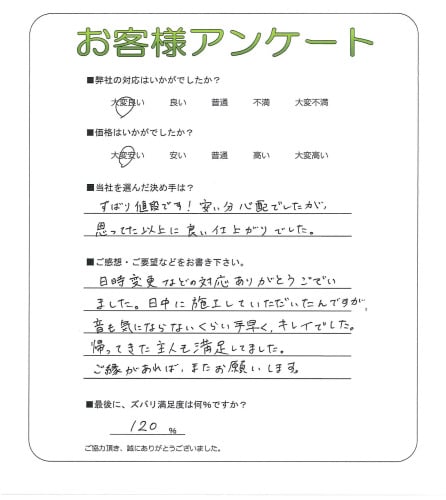 お客様アンケート
■弊社の対応はいかがでしたか?
大変良い 良い 普通 不満 大変不満
■価格はいかがでしたか?
大変安い 安い 普通 高い 大変高い
■当社を選んだ決め手は?
ずばり値段です!安い分心配でしたが、
思ってた以上に良い仕上がりでした。
■ご感想・ご要望などをお書き下さい。
日時変更などの対応ありがとうござい
ました。日中に施工していただいたんですが、
音も気にならないくらい手早く、キレイでした。
帰ってきた主人も満足してました。
ご縁があれば、またお願いします。
■最後に、ズバリ満足度は何%ですか?
120 %
ご協力頂き、誠にありがとうございました。